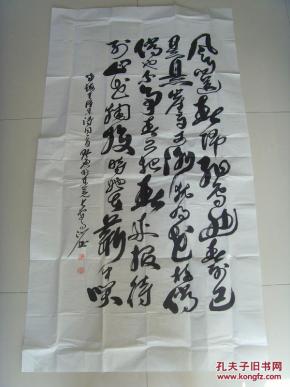 風雨送春归飛雪迎春到已
是悬崖百丈冰猶有花枝俏
俏也不争春只把春来报待
到山花烂漫时她在丛中笑
孔夫子旧书网